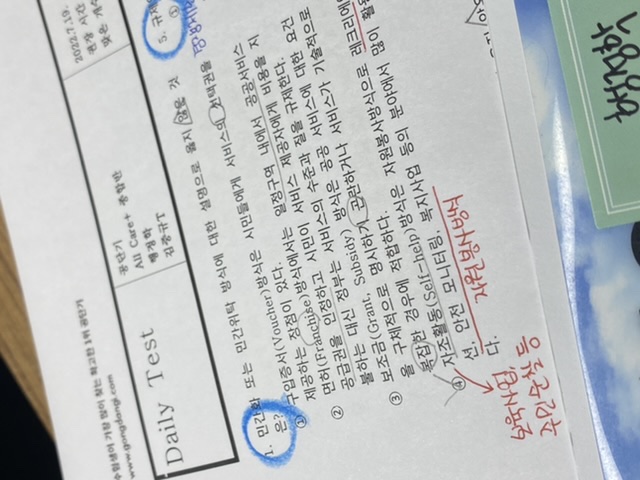 수험생이 가장 많이 찾는 확고한 1위 공단기
www.gongdangi.com
Daily Test
공단기
All Care+ 종합반
행정학
김중규T
2022.7.19.
1. 민간화 또는 민간위탁 방식에 대한 설명으로 옳지 않은 것
은?
① 구입증서(Voucher)방식은 시민들에게 서비스의 선택권을
제공하는 장점이 있다.
② 면허(Franchise)방식에서는 일정구역 내에서 공공서비스
공급권을 인정하고 시민이 서비스 제공자에게 비용을 지
불하는 대신 정부는 서비스의 수준과 질을 규제한다.
③ 보조금(Grant, Subsidy) 방식은 공공 서비스에 대한 요건
을 구체적으로 명시하기 곤란하거나 서비스가 기술적으로
복잡한 경우에 적합하다.
④ 자조활동(Self-help)방식은 자원봉사방식으로 레크리에
션, 안전 모니터링, 복지사업 등의 분야에서 많이 활용
다.
자원봉사방식
주민순찰 등
5. 규제
①
행정학